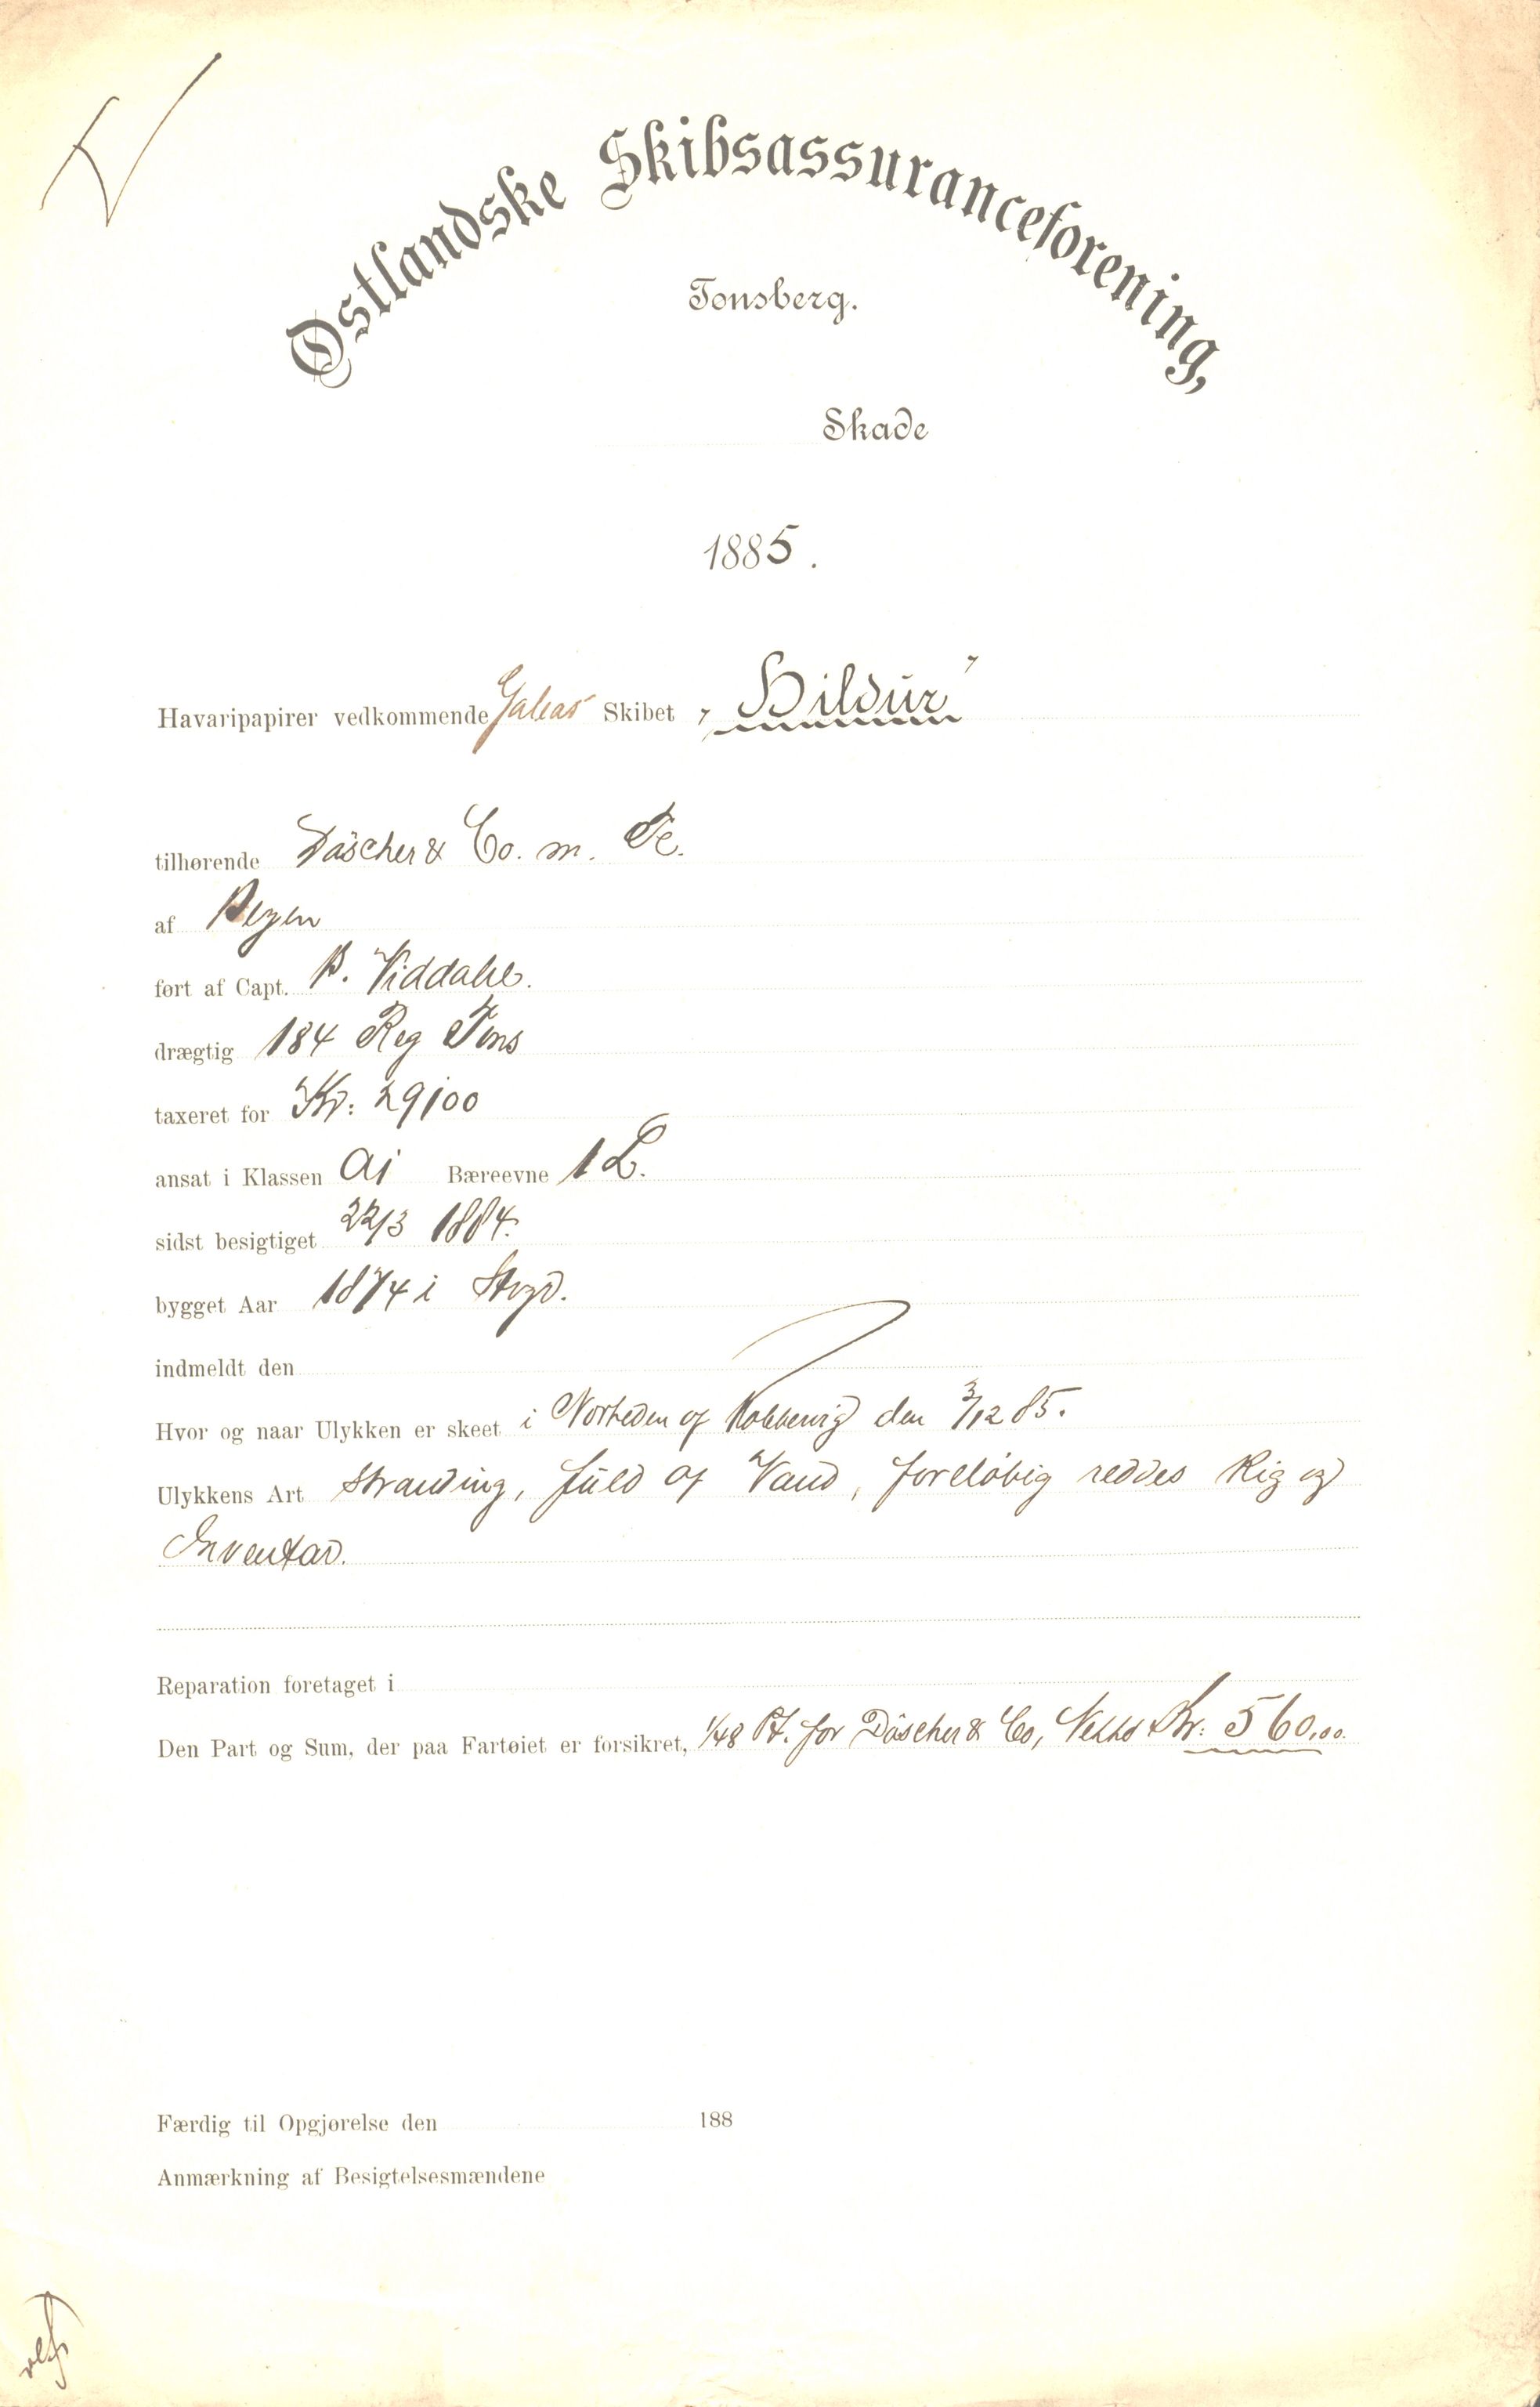 Østlandske Skibsassuranceforening,
Tønsberg.
Skade
1885.
Havaripapirer vedkommende Galeas Skibet "Hildur"
tilhørende Däscher & Co. m. Fl.
af Bergen
ført af Capt. B. Viddahl.
drægtig 184 Reg Tons
taxeret for Kr: 29100
ansat i Klassen A1 Bæreevne 1 L.
sidst besigtiget 22/3 1884.
bygget Aar 1874 i Strd.
indmeldt den
Hvor og naar Ulykken er skeet i Nærheden af den 3/12 85.
Ulykkens Art Stranding, fuld af Vand, foreløbig reddes Rig og
Inventar.
Reparation foretaget i
Den Part og Sum, der paa Fartøiet er forsikret, 1/48 Pt. for Däscher & Co, Netto Kr: 560,00.
Færdig til Opgjørelse den 188
Anmærkning af Besigtelsesmændene